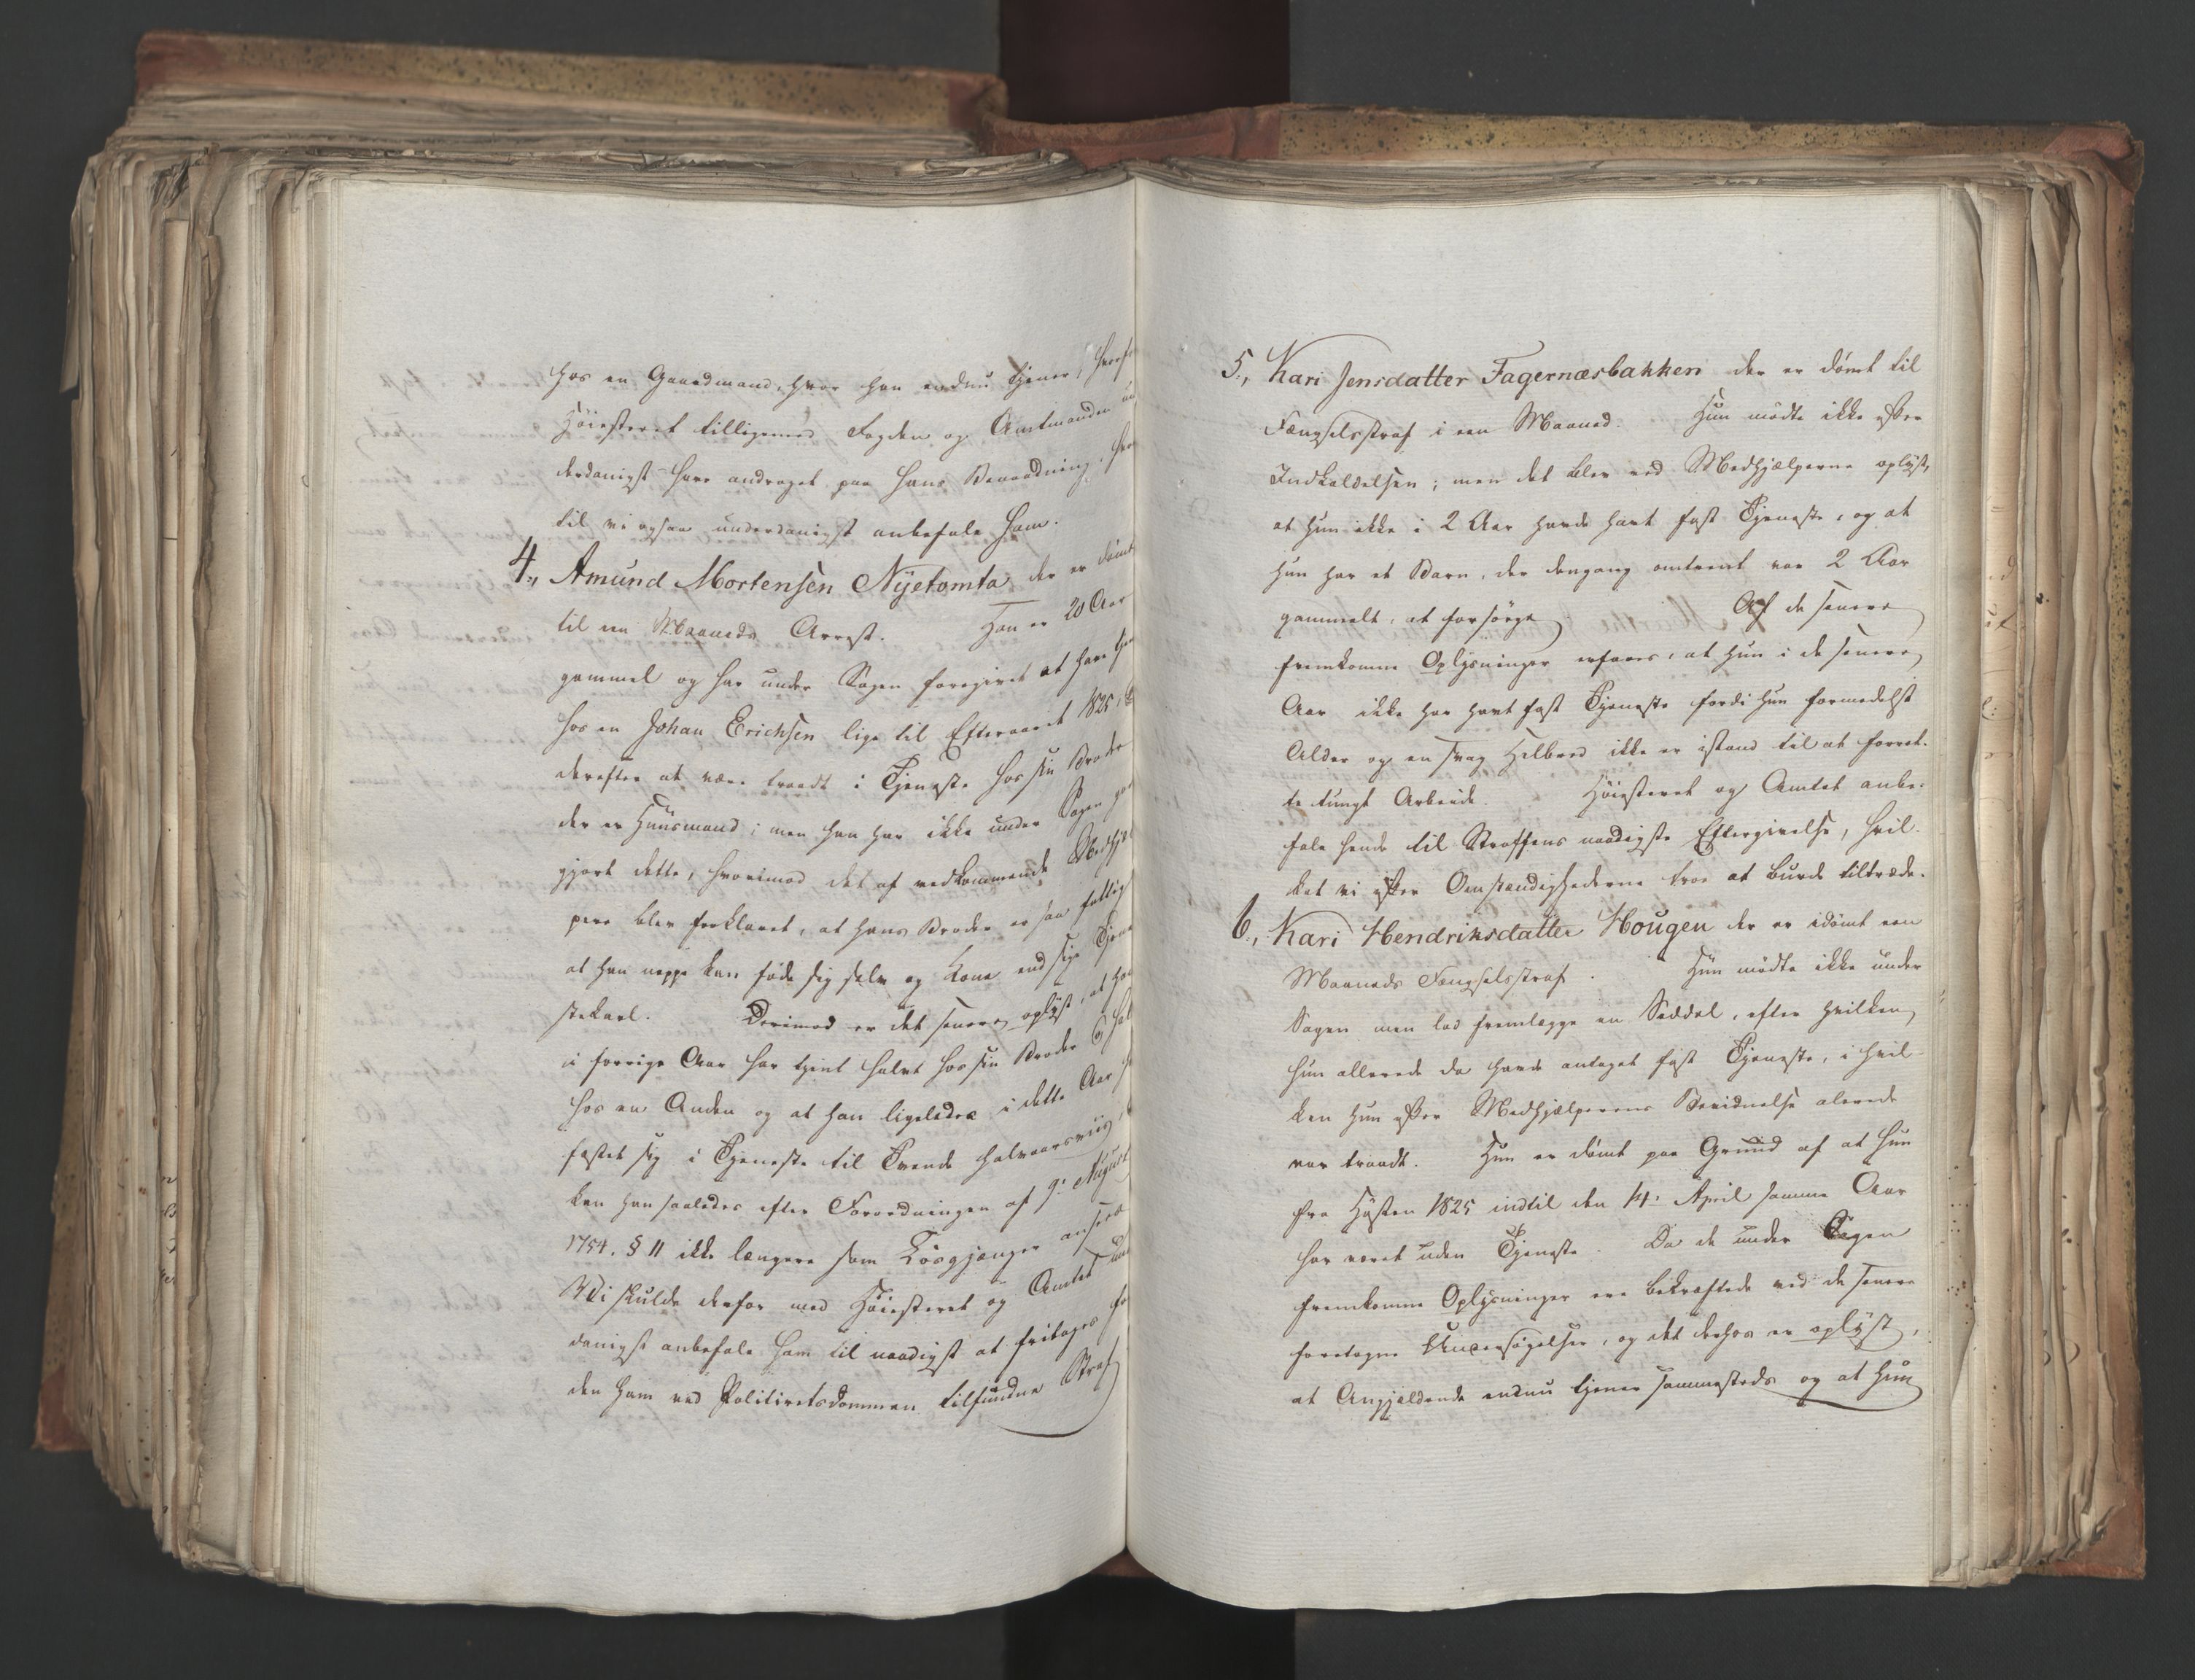 hos en Gaardmand, hvor han endnu tjener,
Høiesteret tilligemed Fogden og Amtmanden un
derdanigst have andraget paa hans Benaadning, hvor
til vi ogsaa underdanigst anbefale ham.
4., Amund Mortensen Nyetomta der er dømt
til een Maaneds Arrest. Han er 20 Aar
gammel og har under Sagen foregivet at have tjen
hos en Johan Erichsen lige til Efteraaret 1825,
derefter at være traadt i Tjeneste hos sin Broder
der er Huusmand; men han har ikke under Sagen god
gjort dette, hvorimod det af vedkommende Medhjæl
pere blev forklaret, at hans Broder er saa fattig
at han neppe kan føde sig selv og Kone end sige Tjene
stekarl. Derimod er det senere oplyst, at han
i forrige Aar har tjent halvt hos sin Broder og halvt
hos en Anden og at han ligeledes i dette Aar har
fæstet sig i Tjeneste til Tvende halvaarsviis,
kan han saaledes efter Forordningen af 9: August
1754. § 11 ikke længere som Løsgjænger ansees
Vi skulde derfor med Høiesteret og Amtet under
danigst anbefale ham til naadigst at fritages for
den ham ved Politiretsdommen tilfundne Straf
5., Kari Jensdatter Fagernæsbakken der er dömt til
Fængselsstraf i een Maaned. Hun mödte ikke efter
Indkaldelsen; men det blev ved Medhjælperne oplyst,
at hun ikke i 2 Aar havde havt fast Tjeneste, og at
hun har et Barn, der dengang omtrent var 2 Aar
gammelt, at forsörge. Af de senere
fremkomne Oplysninger erfares, at hun i de senere
Aar ikke har havt fast Tjeneste fordi hun formedelst
Alder og en svag Helbred ikke er istand til at forret-
te tungt Arbeide. Høiesteret og Amtet anbe-
fale hende til Straffens naadigste Eftergivelse, hvil-
ket vi efter Omstændighederne troe at burde tiltræde.
6., Kari Hendriksdatter Hougen der er idömt een
Maaneds Fængselsstraf. Hun mödte ikke under
Sagen men lod fremlægge en Seddel, efter hvilken
hun allerede da havde antaget fast Tjeneste, i hvil-
ken hun efter Medhjælperens Bevidnelse alerede
var traadt. Hun er dömt paa Grund af at hun
fra Høsten 1825 indtil den 14: April samme Aar
har været uden Tjeneste. Da de under Sagen
fremkomne Oplysninger ere bekræftede ved de senere
foretagne Undersøgelser, og det derhos er oplyst,
at Angjældende endnu tjener sammesteds og at hun